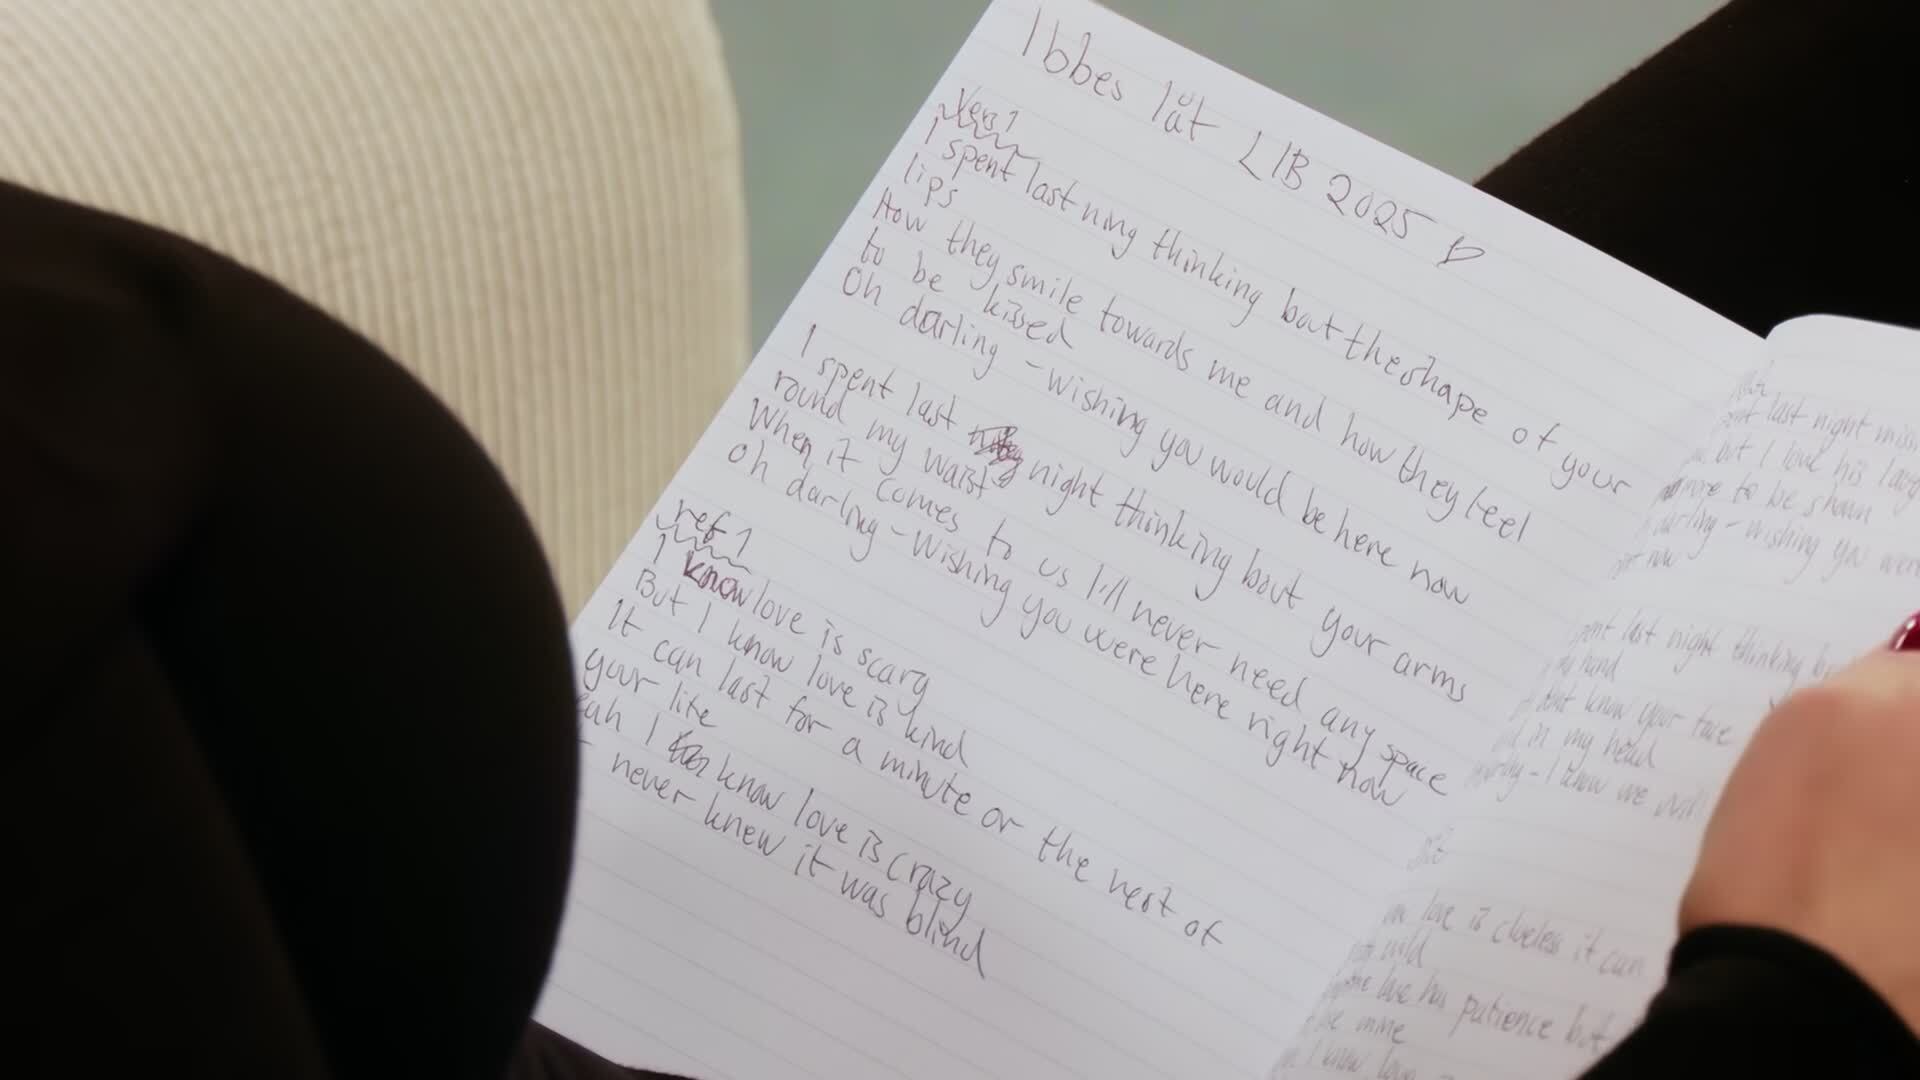 Ibbes låt LIB 2025
Vers 1
I spent last ning thinking bout the shape of your
lips
How they smile towards me and how they feel
to be kissed
Oh darling - wishing you would be here now
I spent last night thinking bout your arms
round my waist
When it comes to us I'll never need any space
Oh darling - wishing you were here right now
ref 1
I know love is scary
But I know love is kind
It can last for a minute or the rest of
your life
I know love is crazy
never knew it was blind
last night
but I love his
to be shown
darling - wishing you were
now
last night thinking
my hand
know your face
in my head
I know we
love is clueless it can
wild
love has patience but
mine
I know love